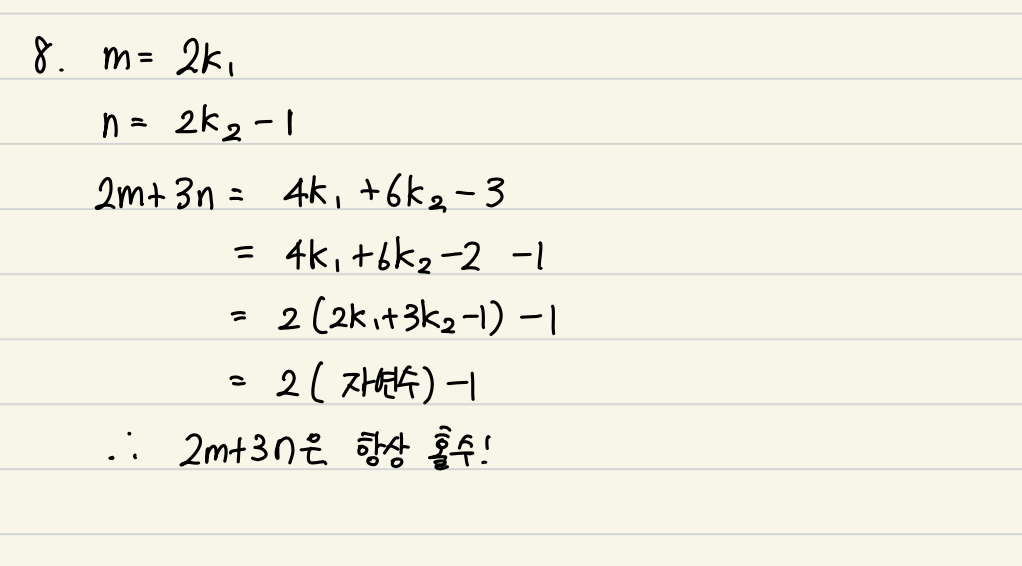 8. m = 2k₁
n = 2k₂ - 1
2m+3n = 4k₁ + 6k₂ - 3
= 4k₁ + 6k₂ - 2 - 1
= 2 (2k₁+3k₂-1) - 1
= 2 ( 자연수) - 1
∴ 2m+3n은 항상 홀수!